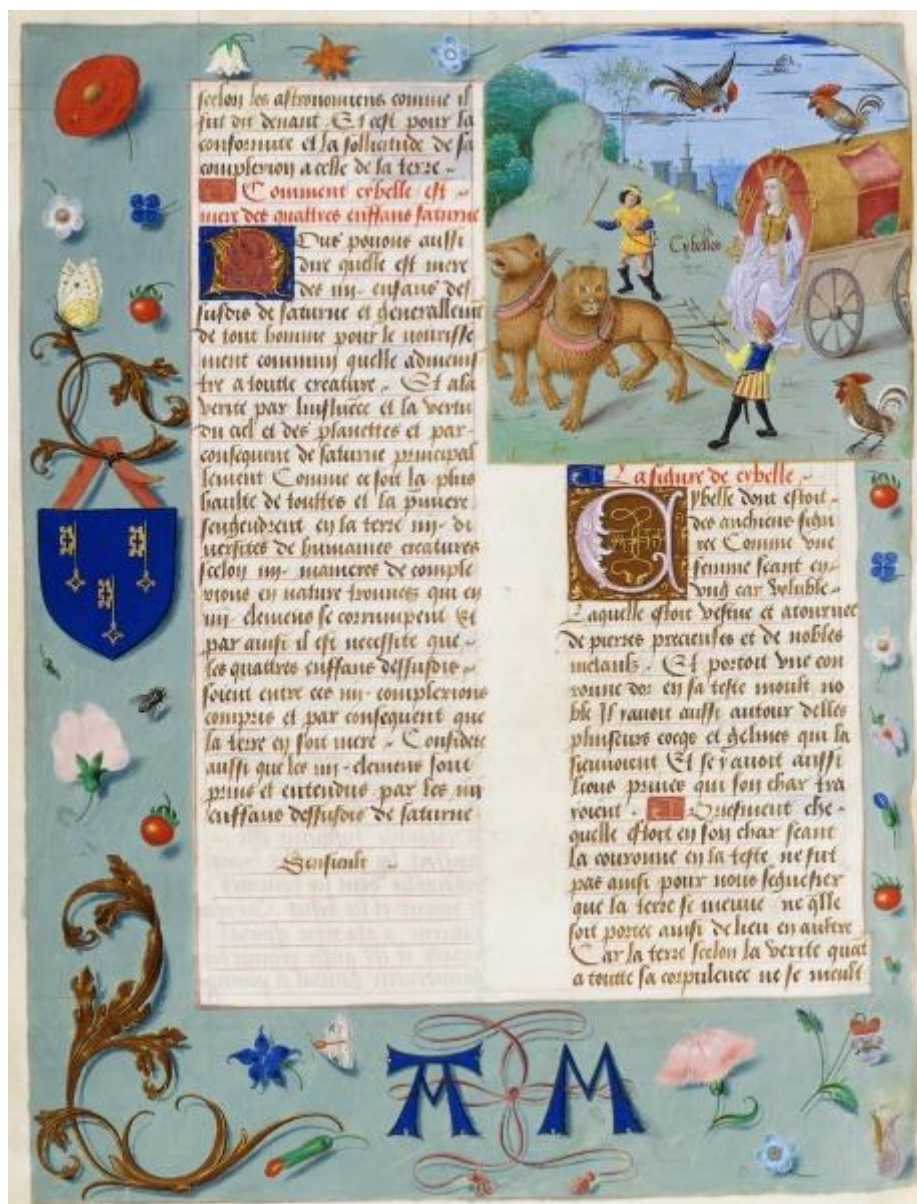 scelon les astronomiens comme il
fut dit deuant. Et cest pour la
conformite et la sollicitude de sa
complexion a celle de la terre.
Comment cybelle est
mere des quattres enffans saturne
Nous pouons aussi
dire quelle est mere
des iiij. enfans des
susdis de saturne et generallement
de tout homme pour le nourisse
ment commun quelle admenis
tre a toutte creature. Et a la
verite par linfluēce et la vertu
du ciel et des planettes et par
consequent de saturne principal
lement Comme ce soit la plus
haulte de touttes et la pmiere
sengendrent en la terre iiij. di
uersites de humaines creatures
scelon iiij. manieres de comple
xions en nature trouuees qui en
iiij. elemens se corrumpent Et
par ainsi il est necessite que
les quattres enffans dessusdis
soient entre ces iiij. complexions
compris et par consequent que
la terre en soit mere. Considere
aussi que les iiij. elemens sont
prins et entendus par les iiij
enffans dessusdis de saturne
Sensieult
Cybelle
La figure de cybelle
Cybelle dont estoit
des anchiens figu
ree Comme vne
femme seant en
vng car voluble
Laquelle estoit vestue et atournee
de pierres precieuses et de nobles
metaulx. Et portoit vne cou
ronne dor en sa teste moult no
ble Il y auoit aussi autour delles
plusieurs cocqs et gelines qui la
sieuuoient Et se y auoit aussi
lions priues qui son char tra
yoient. Briefment che
quelle estoit en son char seant
la couronne en la teste ne fut
pas ainsi pour nous segnefier
que la terre se meuue ne qlle
soit portee ainsi de lieu en aultre
Car la terre scelon la verite quāt
a toutte sa corpulence ne se meult
M M